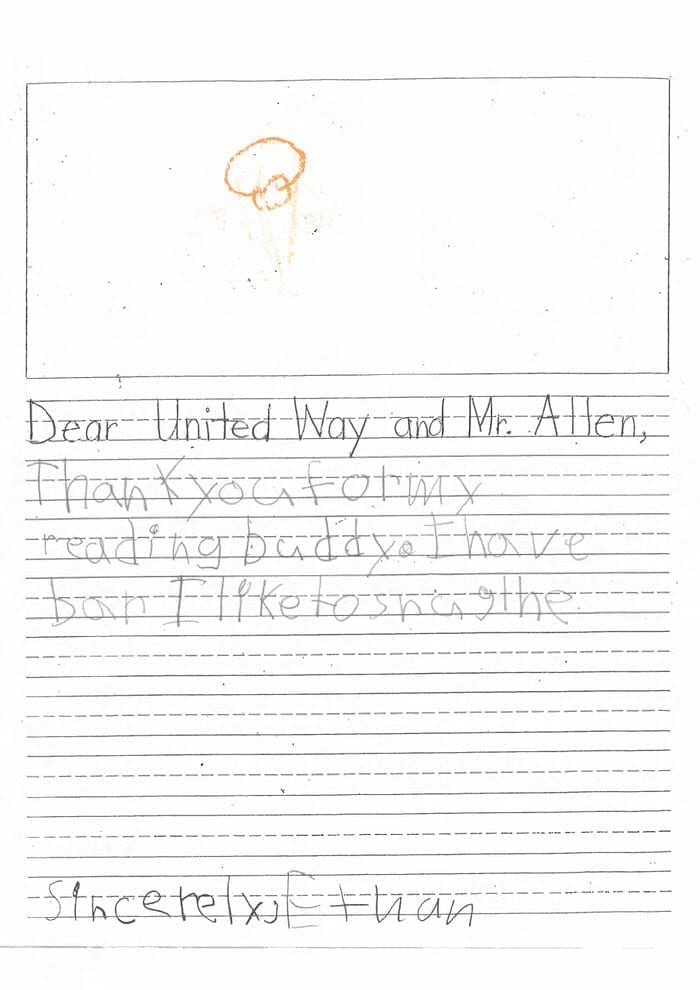 Dear United Way and Mr. Allen,
Thank you for my
reading buddy. I have
ban I like to snugthe
Sincerely, Ethan